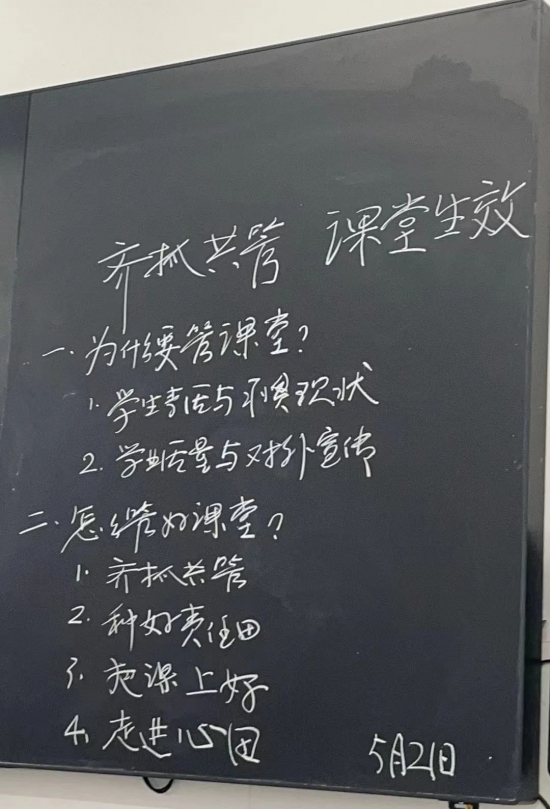 齐抓共管 课堂生效
一.为什么要管课堂?
1.学生素质与习惯现状
2.学业质量与对外宣传
二.怎么管好课堂?
1.齐抓共管
2.种好责任田
3.把课上好
4.走进心田
5月21日